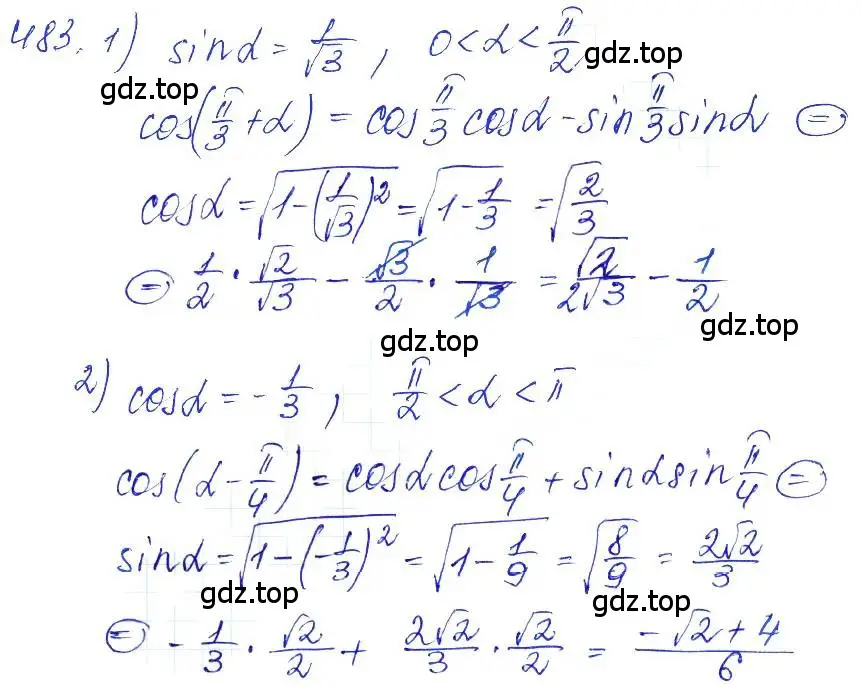 483. 1) sinα = 1/√3, 0 < α < π/2
gdz.top
gdz.top
cos(π/3 + α) = cos π/3 cosα - sin π/3 sinα ⊜
cosα = √(1 - (1/√3)²) = √(1 - 1/3) = √(2/3)
⊜ 1/2 · √2/√3 - √3/2 · 1/√3 = √2/(2√3) - 1/2
gdz.top
gdz.top
2) cosα = -1/3, π/2 < α < π
cos(α - π/4) = cosα cos π/4 + sinα sin π/4 ⊜
sinα = √(1 - (-1/3)²) = √(1 - 1/9) = √(8/9) = 2√2/3
gdz.top
gdz.top
⊜ -1/3 · √2/2 + 2√2/3 · √2/2 = (-√2 + 4)/6